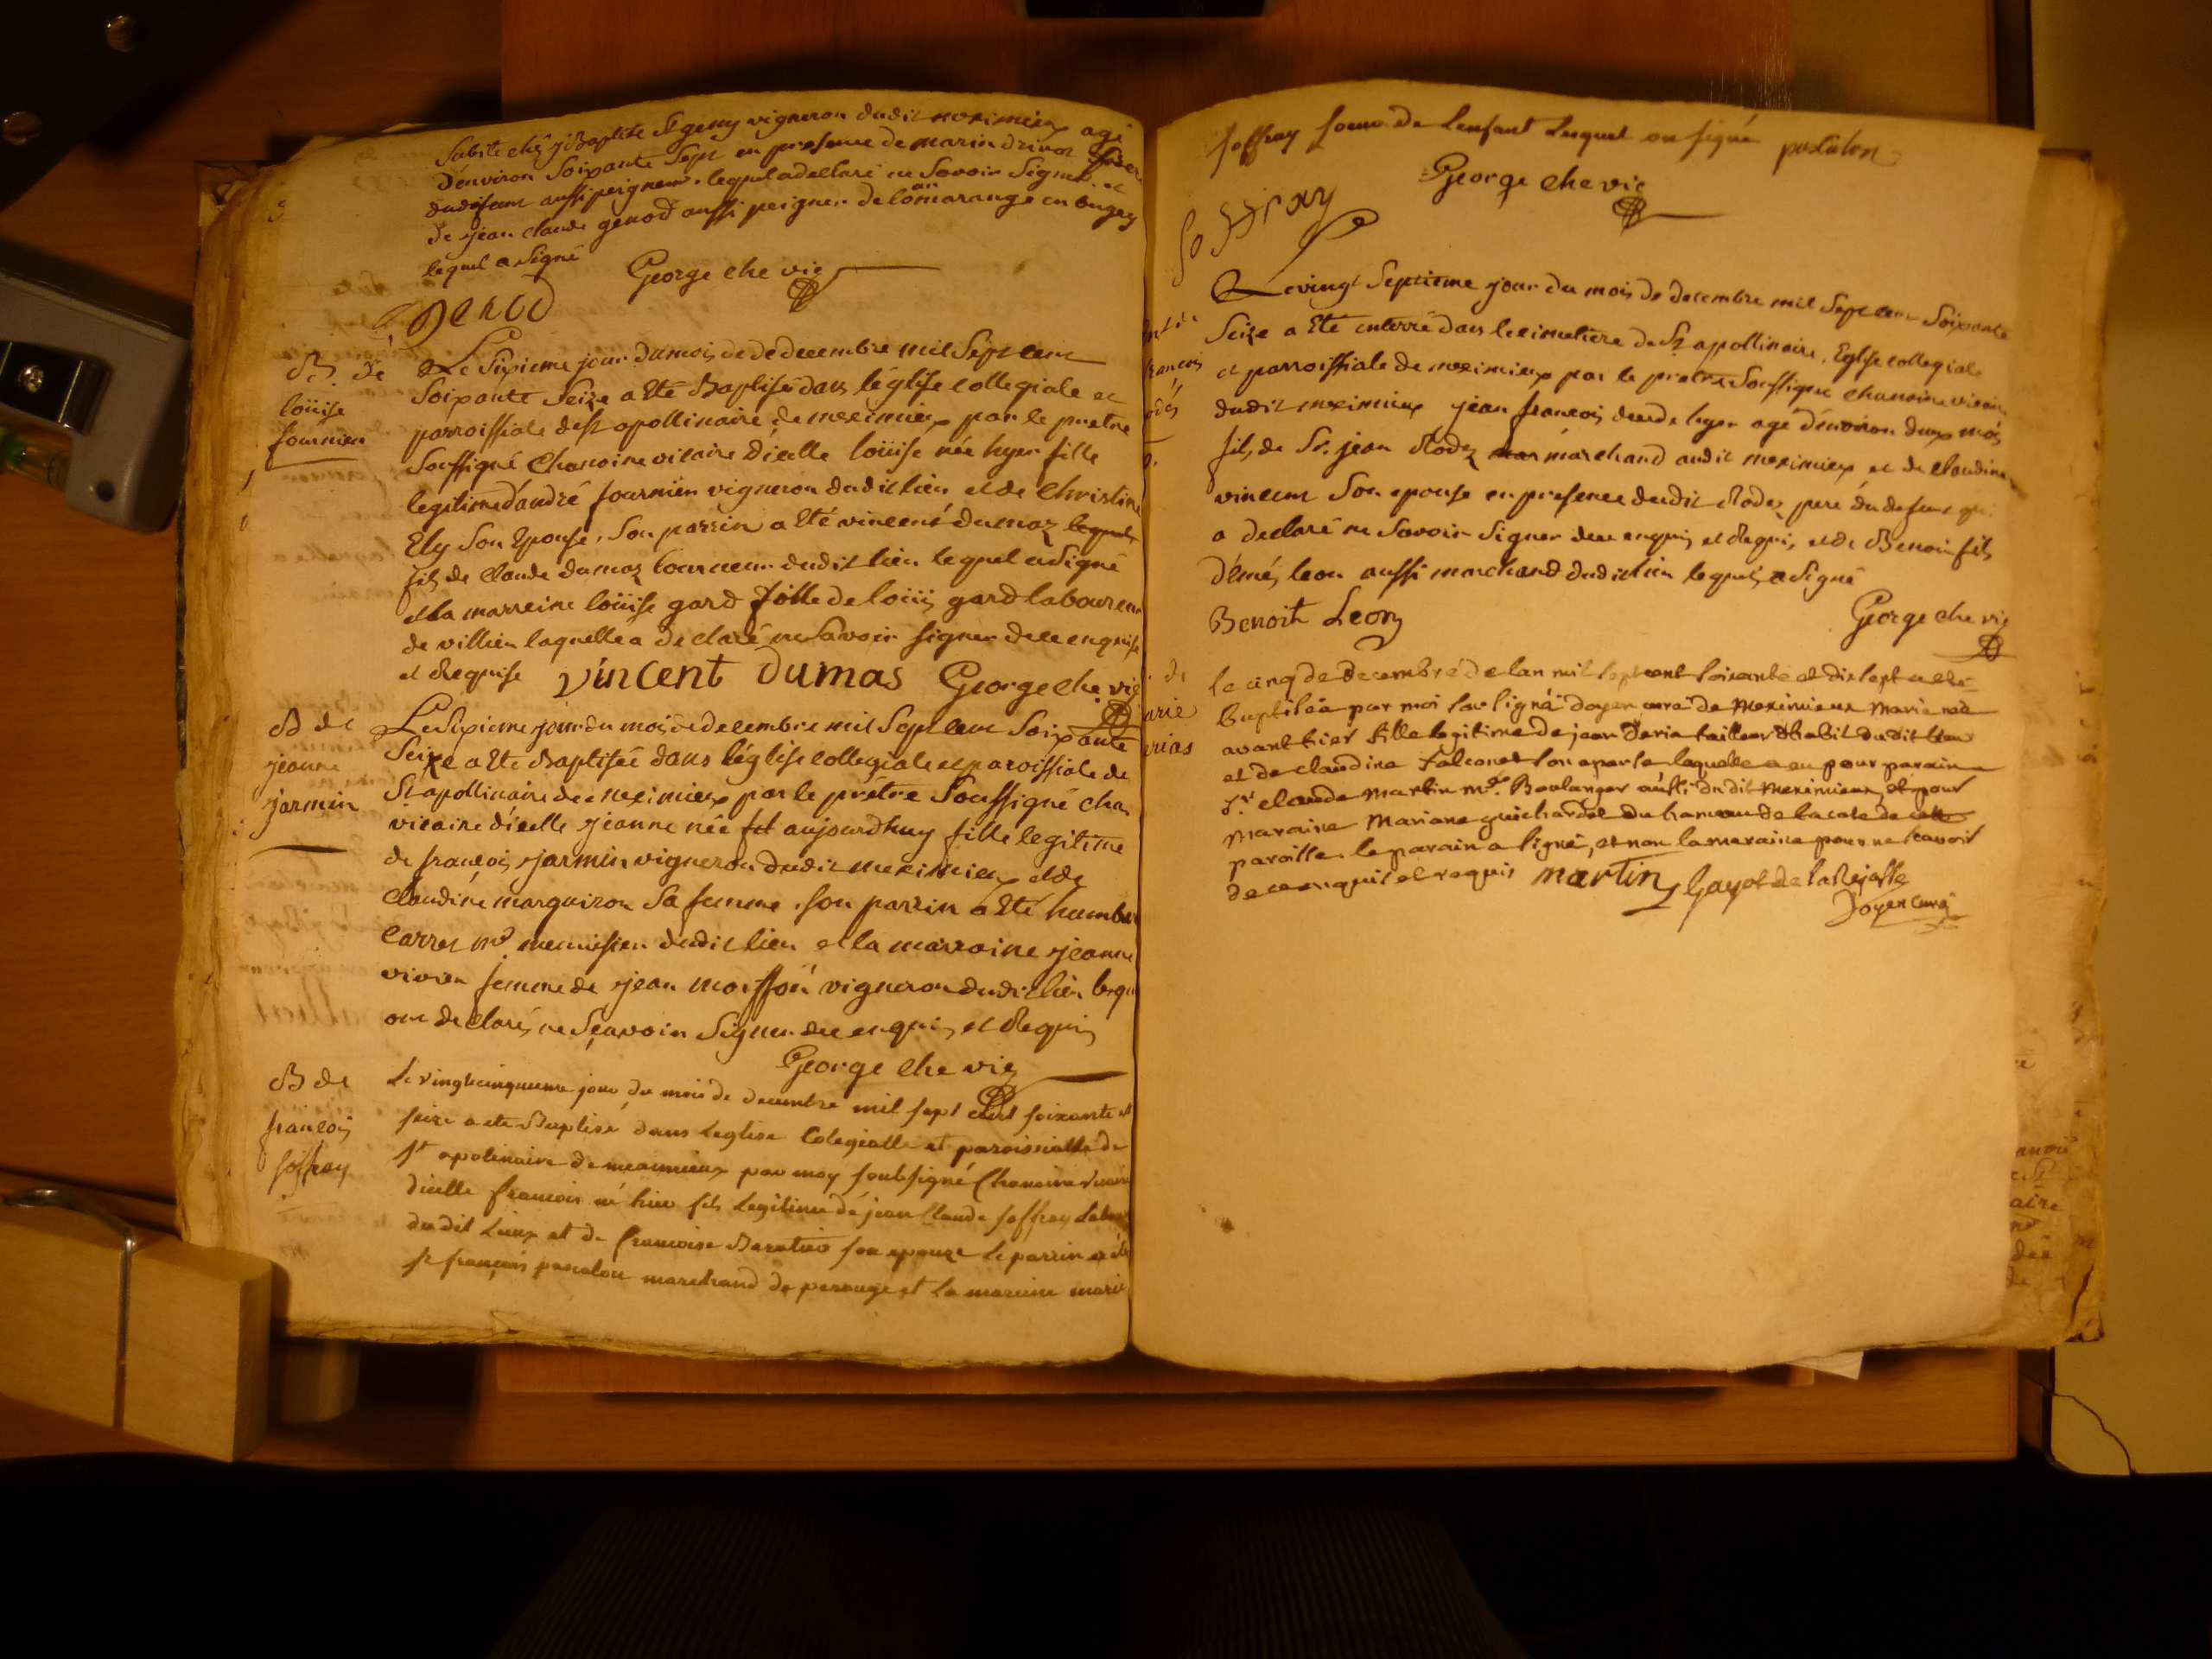 subite chés jBaptiste St geny vigneron dudit meximieux agé
d'environ Soixante Sept en presence de marin drivon
dudéfunt aussi peigneur. lequel a declaré ne Savoir Signer. et
de jean claude genod aussi peigneur de lomarange en bugey
lequel a signé
George che vic
genod
B. de
louise
fournier
Le Sixieme jour dumois de dedecembre mil Sept cent
Soixante Seize a Eté Baptisée dans léglise collegiale et
parroissiale de st apollinaire de meximieux par le pretre
Soussigné Chanoine vicaire d'icelle louise née hyer fille
legitime d'andré fournier vigneron dudit lieu et de Christine
Ely Son Epouse, Son parrin a Eté vincent dumaz lequel
fils de Claude dumaz tourneur dudit lieu lequel a Signé
et la marreine louise gard fille de loüis gard laboureur
de villieu laquelle a declaré ne Savoir signer de ce enquise
et Requise vincent Dumas George che vic
B de
jeanne
jarmin
Le Sixieme jour du mois de decembre mil Sept cent Soixante
Seize a Eté Baptisée dans léglise collegiale et paroissiale de
St apollinaire de meximieux par le prêtre Soussigné cha.
vicaire d'icelle jeanne née aujourdhuy fille legitime
de francois jarmin vigneron dudit meximieux et de
Claudine marguiron Sa femme, son parrin a Eté humber
Carret md. menuisier dudit lieu et la marraine jeanne
vivien femme de jean moisson vigneron dudit lieu lesqu
ont declarés ne Sçavoir Signer de ce enquis et Requis
George che vic
B de
francois
joffray
Le vingtcinquieme jour du mois de decembre mil sept cent soixante et
seize a ete Baptisé dans Leglise Colegialle et paroissialle de
st apolinaire de meximieux par moy soubsigné Chanoine vicaire
dicelle francois né hier fils Legitime de jean Claude joffray Labou
du dit Lieux et de francoise Beratier son epouze le parrin a été
sr francois pascalon marchand de perouge et la mareine marie
joffray soeur de Lenfant Lesquel on signé pascalon
George che vic
joffray
francois
Le vingt Septieme jour du mois de decembre mil Sept cent Soixante
Seize a Eté enterré dans le cimetiere de St apollinaire, Eglise collegiale
et parroissiale de meximieux par le pretre Soussigné chanoine vicaire
dudit meximieux jean francois décédé hyer agé d'environ deux mois
fils de Sr. jean Rodez marchand audit meximieux et de Claudine
vincent Son epouse en presence dudit Rodez pere du defunt qui
a declaré ne Savoir Signer de ce enquis et Requis, et de Benoit fils
d'émés leon aussi marchand dudit lieu lequel a Signé
Benoit Leon
George che vic
de
arie
rias
le cinq de decembre de lan mil sept cent soixante et dix sept a eté
baptisée par moi soussigné doyen curé de Meximieux Marie née
avant hier fille legitime de jean Deria tailleur d'habit du dit lieu
et de claudine falconet son epouse laquelle a eu pour parain
Sr. claude Martin md. Boulanger aussi du dit Meximieux, et pour
Maraine Mariane guichardet du hameau de la cote de cette
paroisse. le parain a signé, et non la maraine pour ne scavoir
de ce enquis et requis Martin Gayot de la Rejasse
Doyen curé